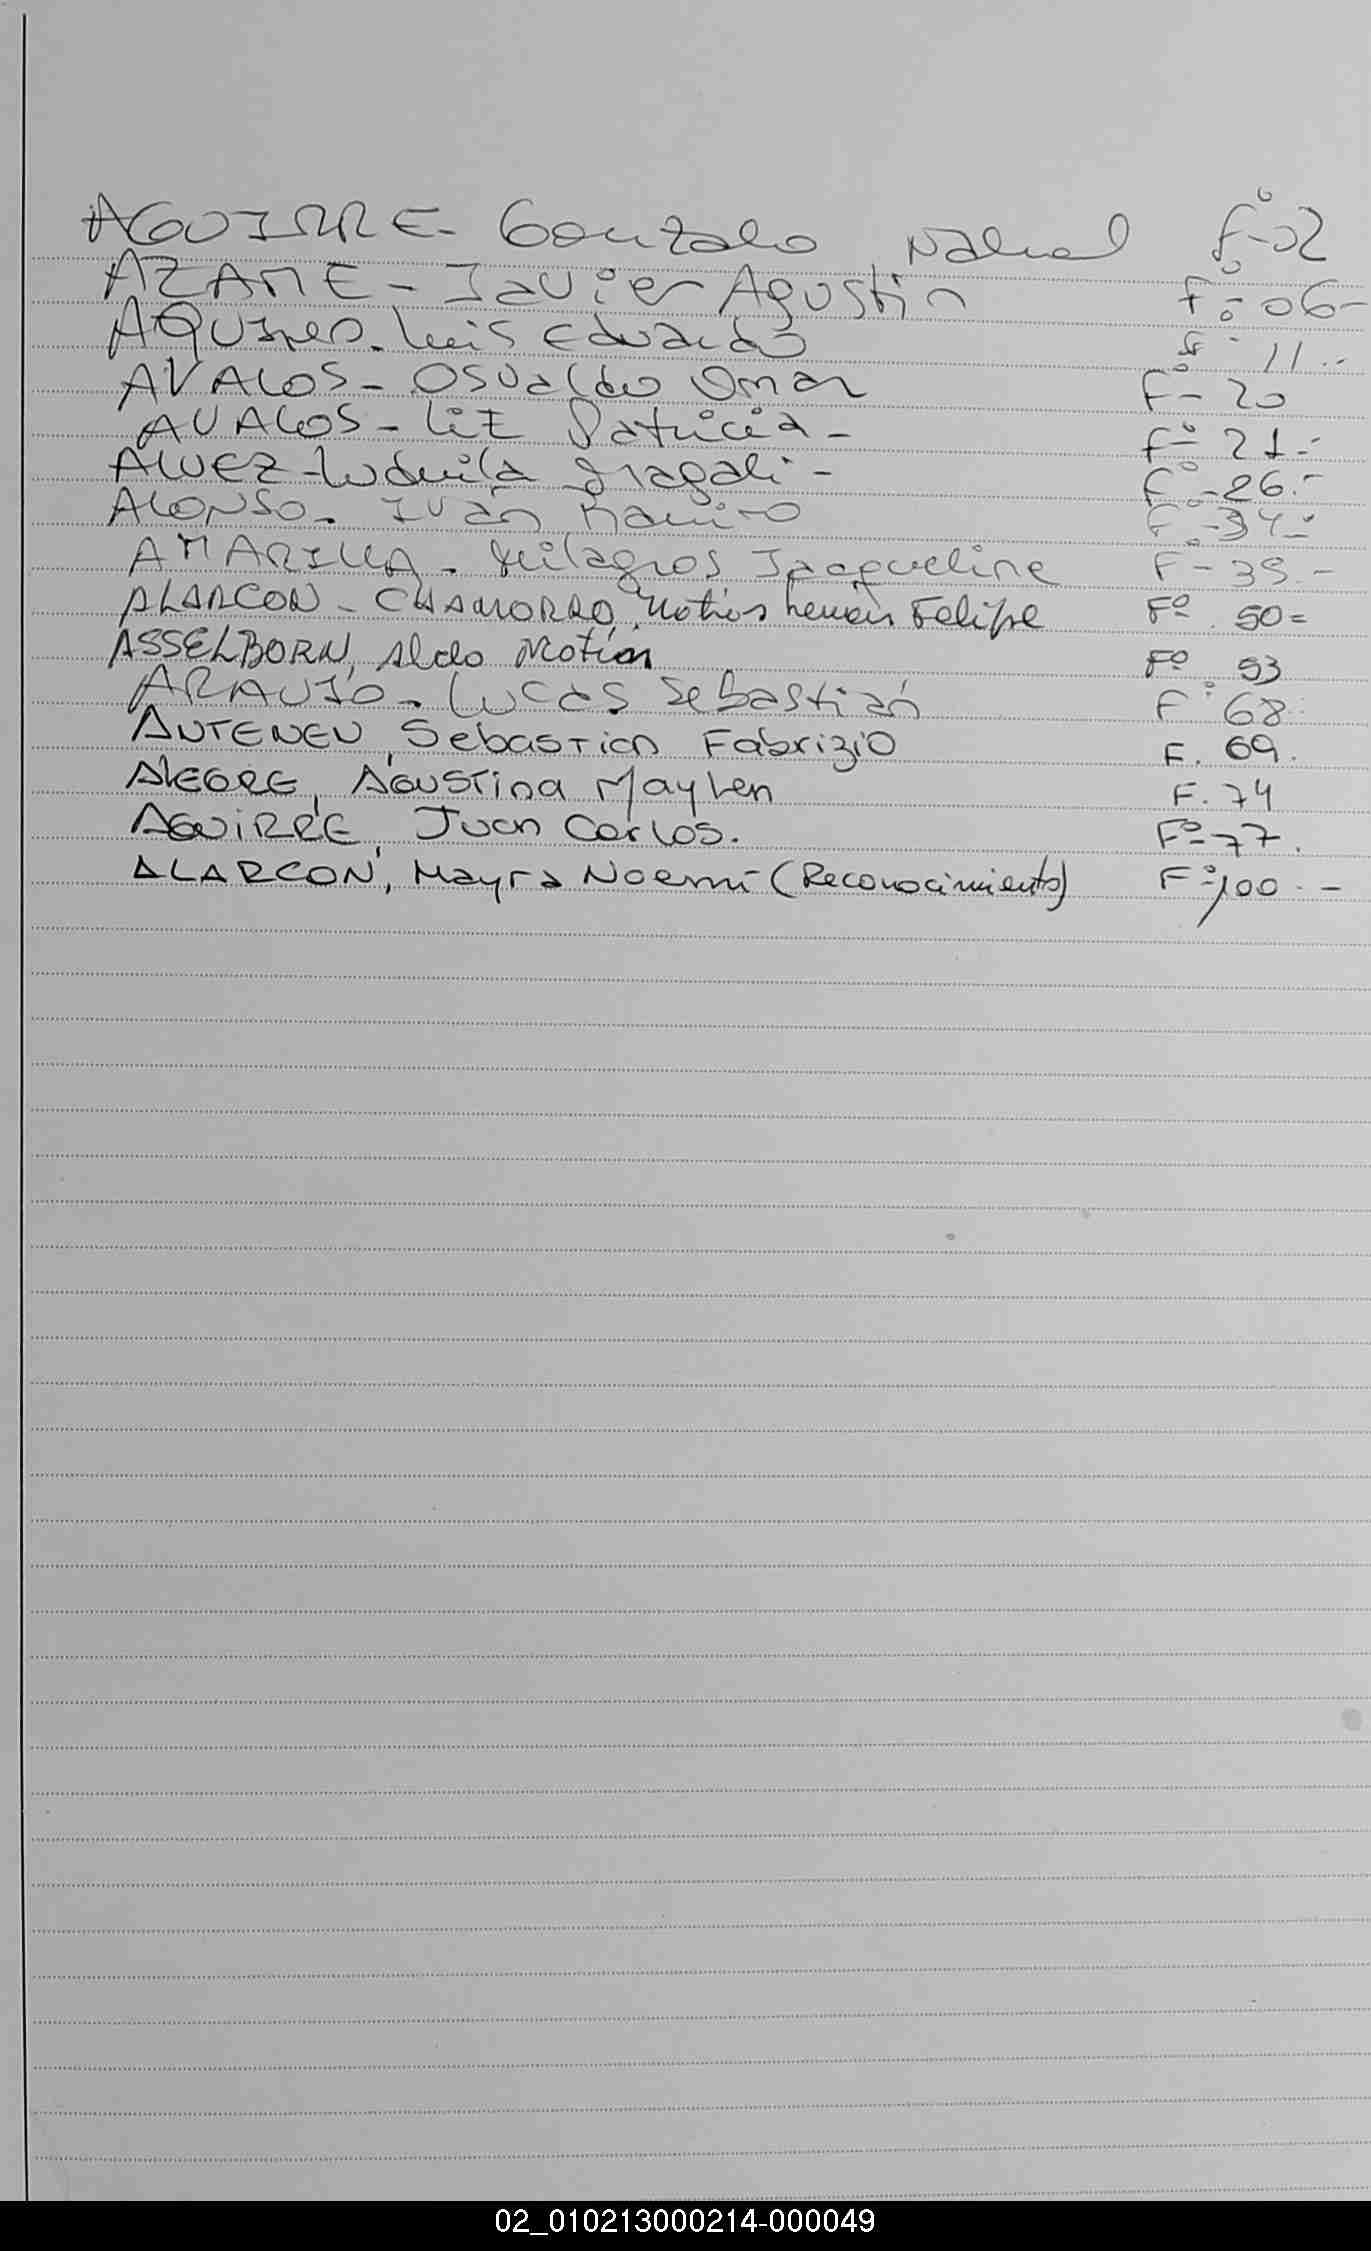 AGUIRRE - Gonzalo Nahuel Fº-02
AZAME - Javier Agustin Fº: 06-
AQUINO - Luis Eduardo Fº 11.-
AVALOS - Osvaldo Omar Fº- 20
AVALOS - Liz Patricia - Fº 21.-
ALVEZ - Ludmila Magali - Fº-26.-
ALONSO - Iván Ramiro Fº-34.-
AMARILLA - Milagros Jacqueline Fº-35.-
ALARCON - CHAMORRO, Matias Hernán Felipe Fº 50=
ASSELBORN, Aldo Matías Fº 53
ARAUJO - Lucas Sebastián Fº 68.
Sebastian Fabrizio F. 69.
ALEGRE, Agustina Maylen F. 74
AGUIRRE, Juan Carlos. Fº-77.
ALARCON, Mayra Noemí (Reconocimiento) Fº 100.-
02_010213000214-000049